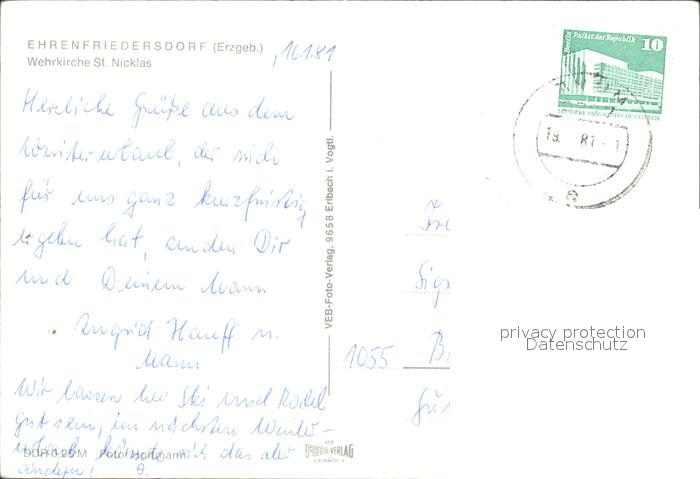 EHRENFRIEDERSDORF (Erzgeb.)
Wehrkirche St. Nicklas
, 16.1.81
Herzliche Grüße aus dem
Winterurlaub, der sich
für uns ganz kurzfristig
ergeben hat, senden Dir
und Deinem Mann
Ingrid Hauff u.
Mann
Wir lassen hier Ski und Rodel
gut sein, im nächsten Winter-
urlaub könnte sich das aber
ändern!
DDR 0,25 M Foto: Hoffmann
VEB-Foto-Verlag, 9658 Erlbach i. Vogtl.
FOTO VERLAG
ERLBACH · V
Berlin Palast der Republik
10
DEUTSCHE DEMOKRATISCHE REPUBLIK
19. 81 - 1
Sigr
1055 B
privacy protection
Datenschutz